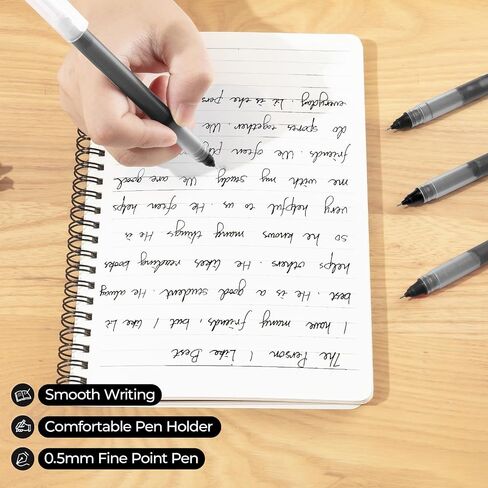 The Person I Like Best
I have many friends, but I like Li
best. He is a good student. He always
helps others. He likes reading books
so he knows many things. He is
very helpful to us. He often helps
me with my study. We are good
friends. We often
do sports together. We
everyday. Li is the pers
Smooth Writing
Comfortable Pen Holder
0.5mm Fine Point Pen